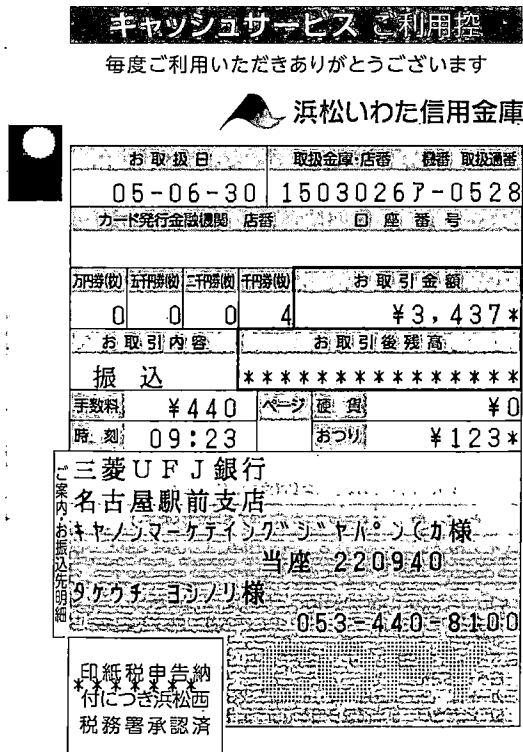 キャッシュサービス ご利用控
毎度ご利用いただきありがとうございます
浜松いわた信用金庫
お取扱日 取扱金庫・店番 機番 取扱通番
05-06-30 1503026ｱ-0528
カード発行金融機関 店番 口座番号
万円券(枚) 五千円券(枚) 二千円券(枚) 千円券(枚) お取引金額
0 0 0 4 ¥3,437*
お取引内容 お取引後残高
振込 ***************
手数料 ¥440 ページ 硬貨 ¥0
時刻 09:23 おつり ¥123*
ご案内・お振込先明細
三菱UFJ銀行
名古屋駅前支店
ｷﾔﾉﾝﾏｰｹﾃｲﾝｸﾞｼﾞﾔﾊﾟﾝ(ｶ様
当座 220940
ﾀｹｳﾁ ﾖｼﾉﾘ様
053-440-8100
印紙税申告納
*******
付につき浜松西
税務署承認済